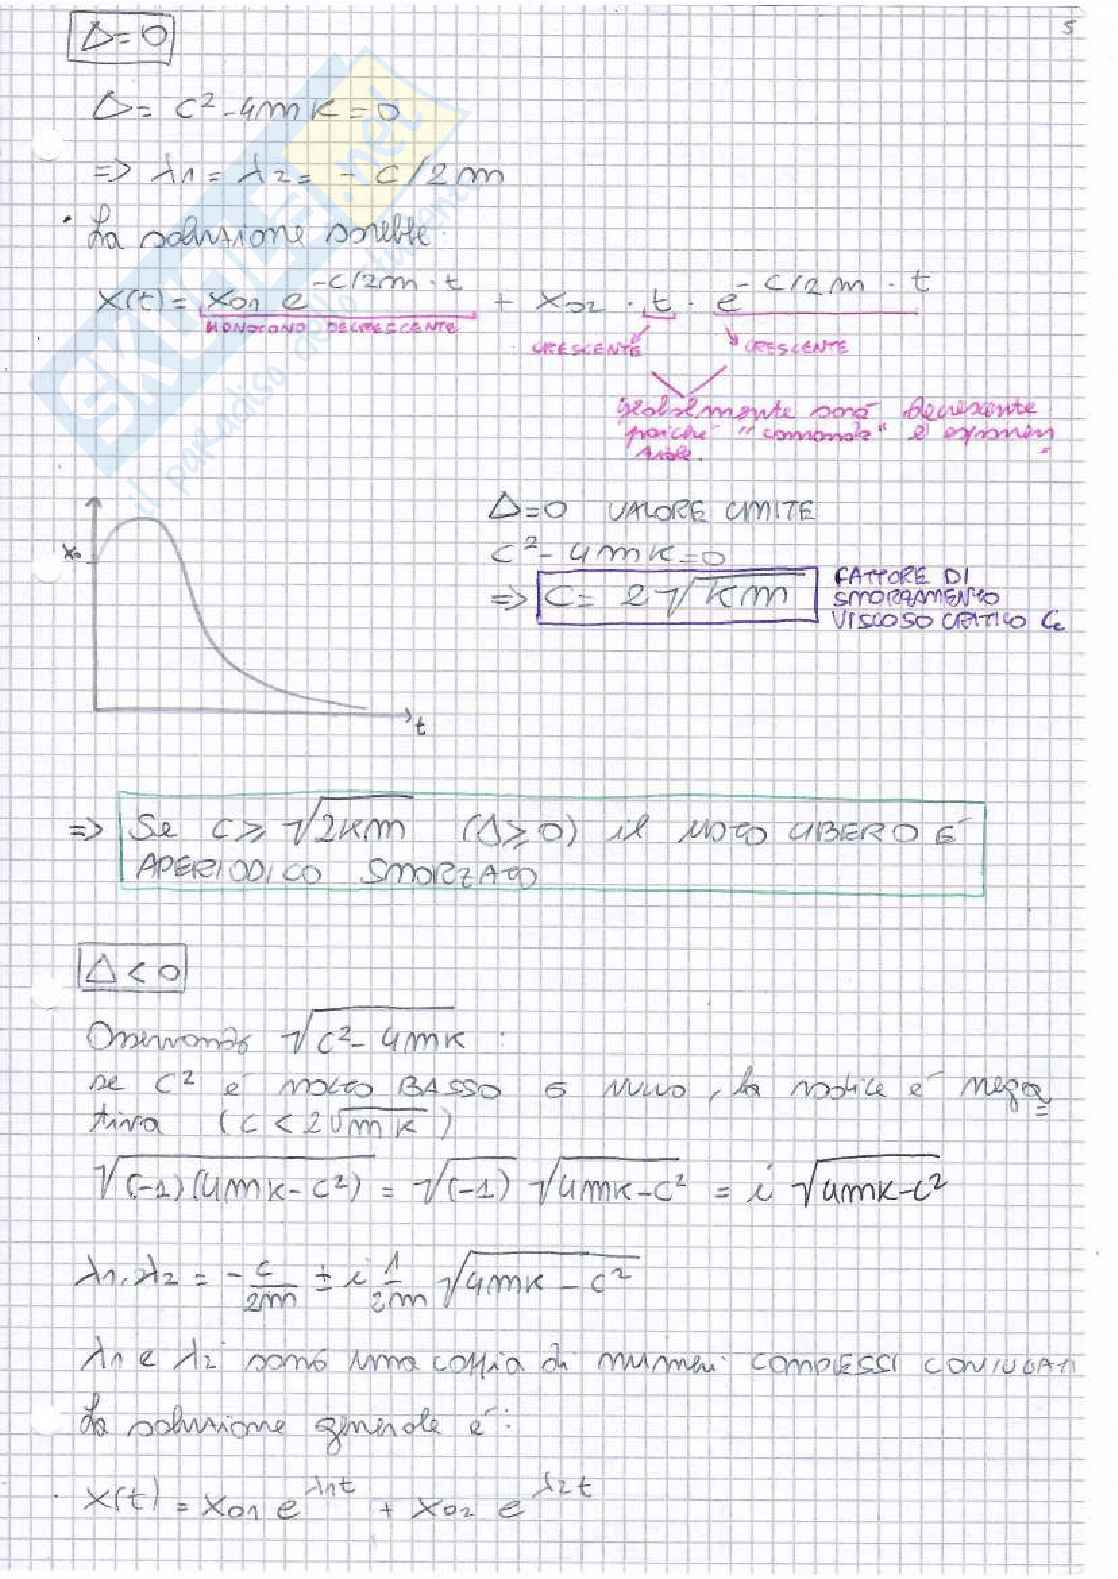 5
Δ=0
Δ= c²-4mk=0
=> λ1= λ2= -c/2m
· La soluzione sarebbe:
x(t)= x01 e^-c/2m · t + x02 · t · e^-c/2m · t
MONOTONO DECRESCENTE
CRESCENTE CRESCENTE
globalmente sarà decrescente
poiché "comanda" l'esponen
ziale.
x0
t
Δ=0 VALORE LIMITE
c²-4mk=0
=> C= 2√km
FATTORE DI
SMORZAMENTO
VISCOSO CRITICO Cc
=> Se c ≥ √2km (Δ≥0) il MOTO LIBERO È
APERIODICO SMORZATO
Δ<0
Osservando √c²-4mk :
se c² è MOLTO BASSO o nullo, la radice è nega
tiva (c < 2√mk)
√(-1)(4mk-c²) = √(-1) √4mk-c² = i √4mk-c²
λ1,λ2 = -c/2m ± i 1/2m √4mk-c²
λ1 e λ2 sono una coppia di numeri COMPLESSI CONIUGATI
La soluzione generale è:
· x(t) = x01 e^λ1t + x02 e^λ2t
SKUOLA.net
il paradiso dello studente